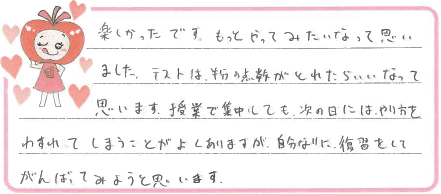 楽しかったです。もっとやってみたいなって思い
ました。テストは、半分の点数がとれたらいいなって
思います。授業で集中しても、次の日には、やり方を
わすれてしまうことがよくありますが、自分なりに、復習をして
がんばってみようと思います。